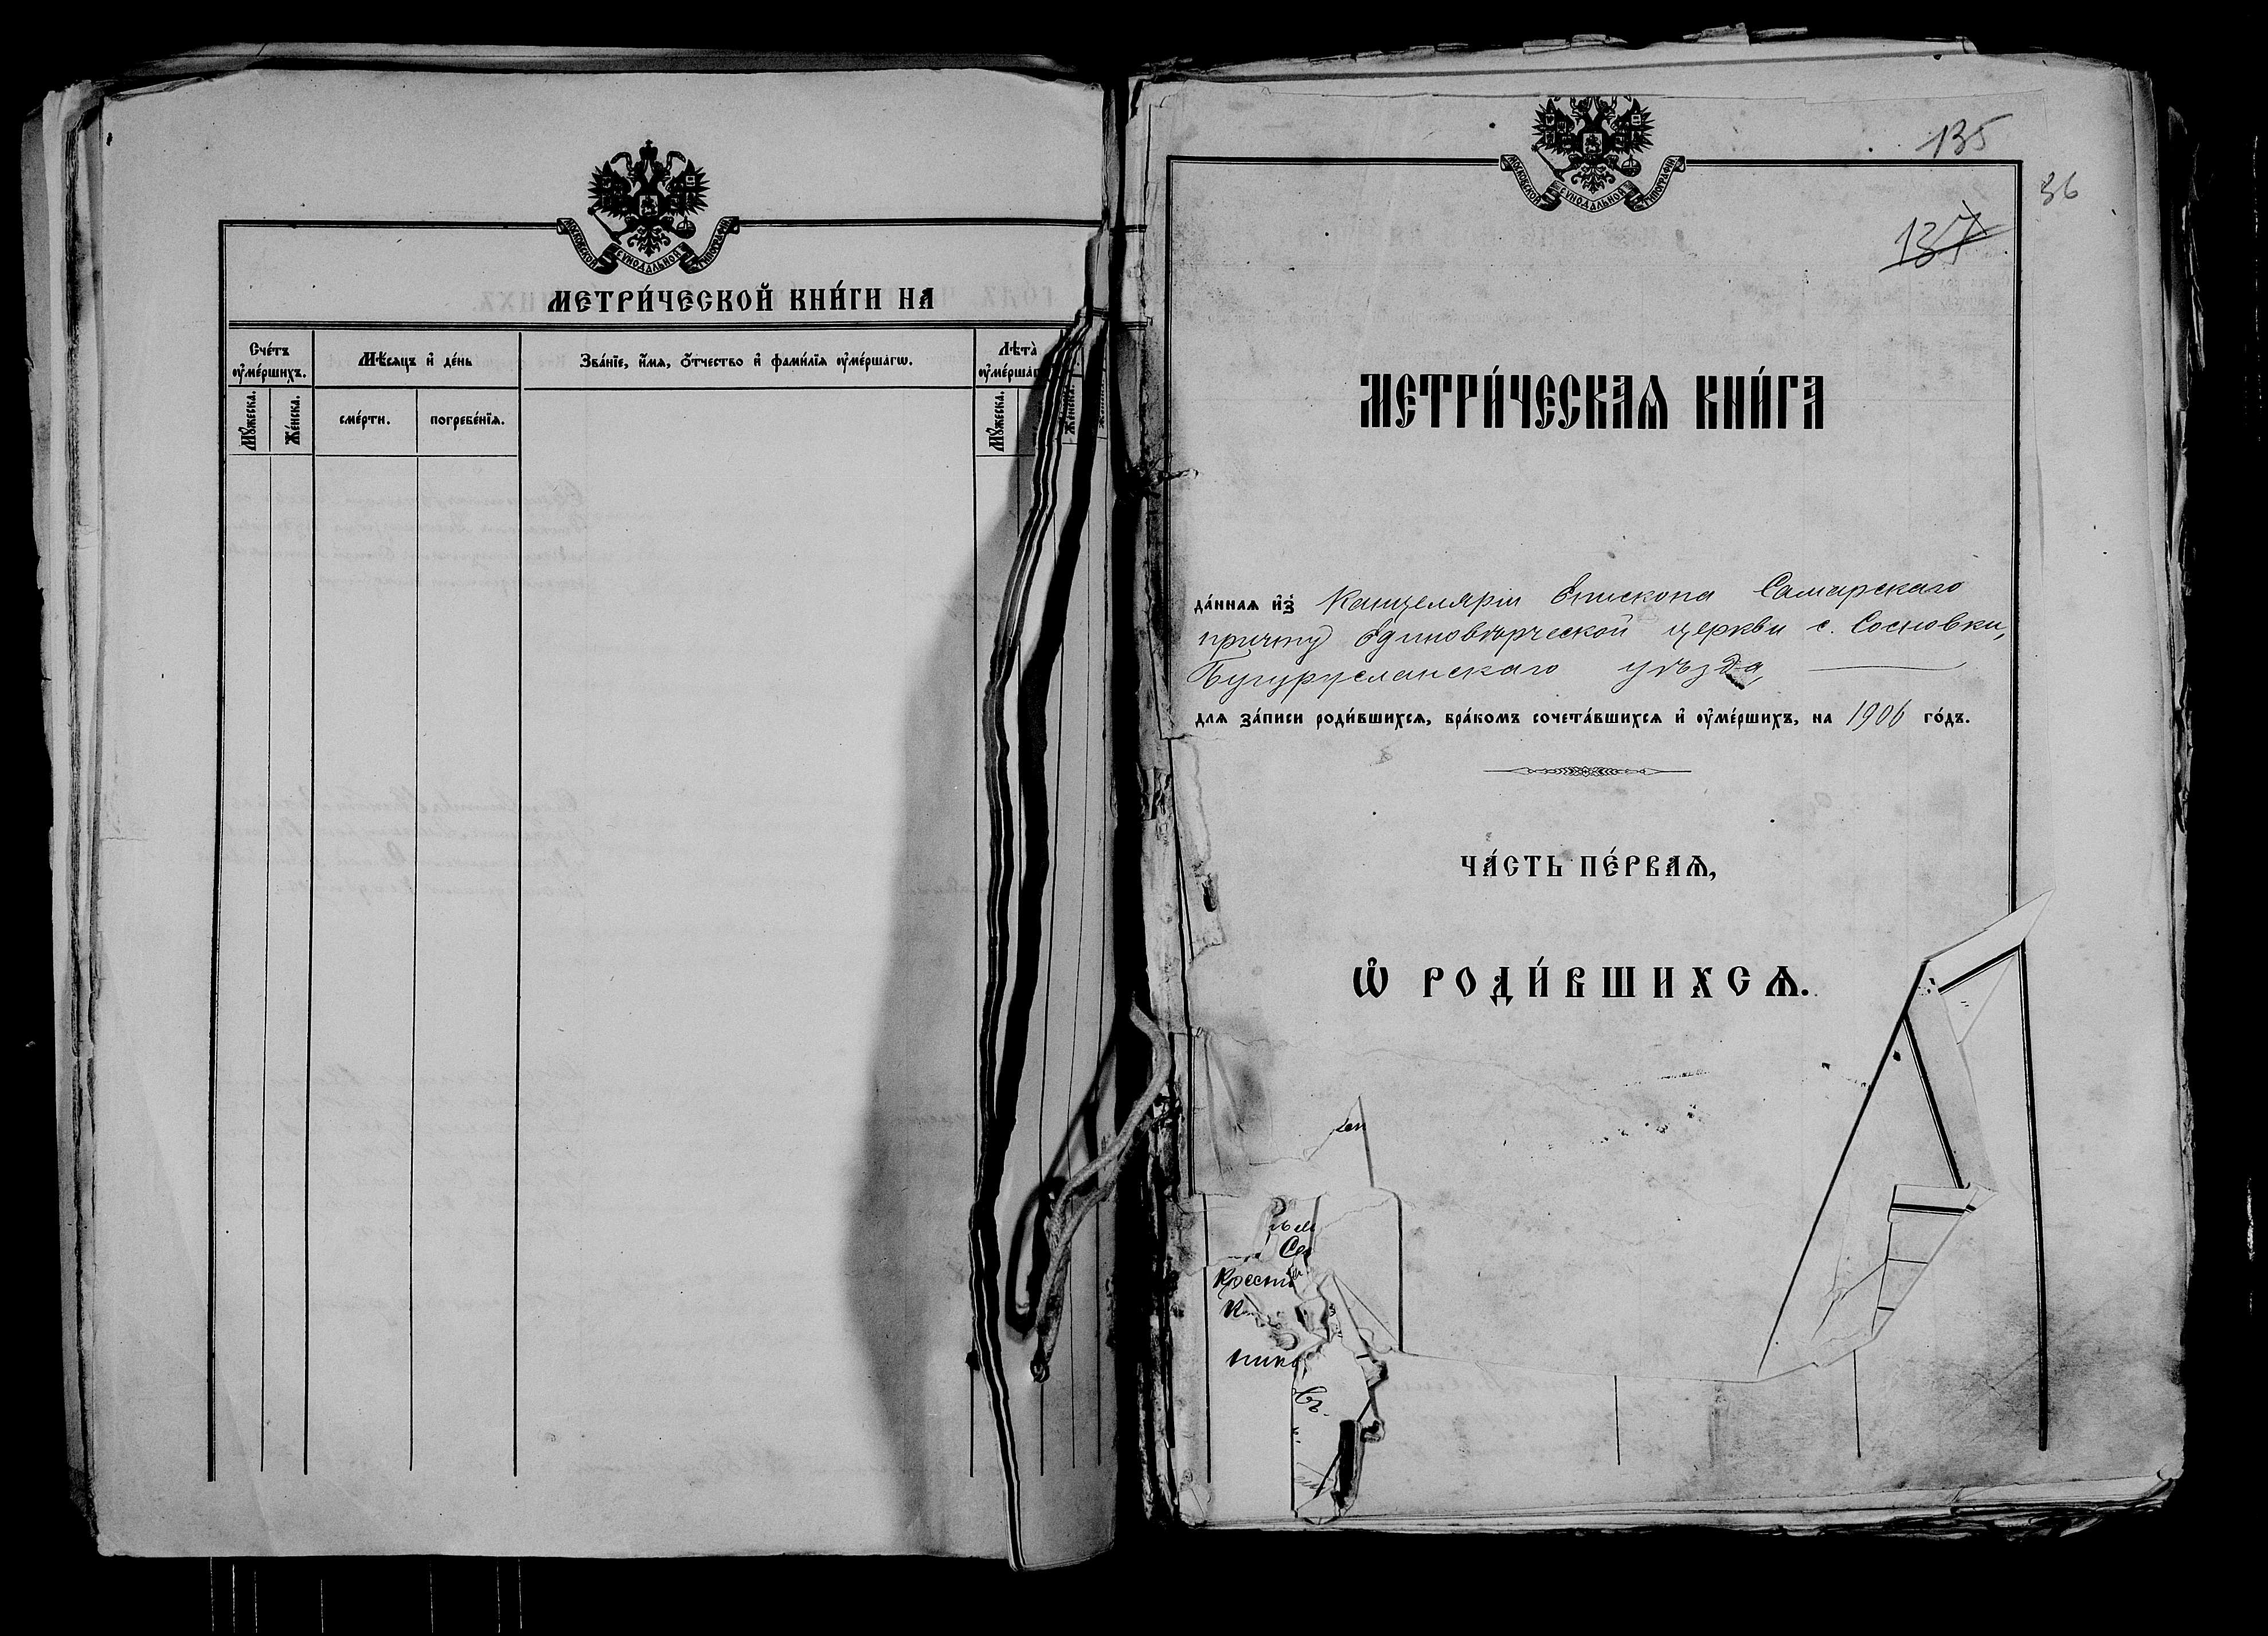 МОСКОВСКОЙ СѴНОДАЛЬНОЙ ТИПОГРАФІИ
МЕТРИ́ЧЕСКОЙ КНИ́ГИ НА
Сче́тъ ᲂу҆ме́ршихъ.
Мѣ́сяцъ и҆ де́нь
Зва́нїе, и҆́мя, ѻ҆́тчество и҆ фами́лїя ᲂу҆ме́ршагѡ.
Лѣ́та
Мꙋ́жеска.
Же́нска.
сме́рти.
погребе́нїя.
Мꙋ́жеска.
Же́нска.
МОСКОВСКОЙ СѴНОДАЛЬНОЙ ТИПОГРАФІИ
135
36
137
МЕТРИ́ЧЕСКАѦ КНИ́ГА
да́нная и҆з̾ Канцеляріи Епископа Самарскаго
причту Единовѣрческой церкви с. Сосновки,
Бугурусланскаго уѣзда,
для за́писи роди́вшихся, бра́комъ сочета́вшихся и҆ ᲂу҆ме́ршихъ, на 1906 го́дъ.
ЧА́СТЬ ПЕ́РВАѦ,
Ѡ҆ РОДИ́ВШИХСѦ.